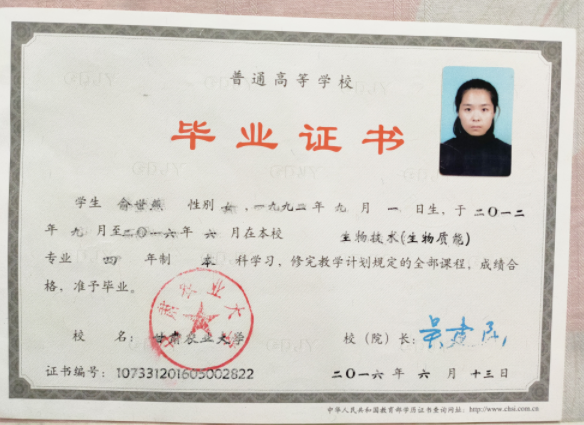 普通高等学校
毕业证书
学生 俞世燕 性别 女，一九九二年 九 月 一 日生，于二〇一二
年 九 月至二〇一六年 六 月在本校 生物技术(生物质能)
专业 四 年制 本 科学习，修完教学计划规定的全部课程，成绩合
格，准予毕业。
校 名：甘肃农业大学 校（院）长：吴建民
证书编号：107331201605002822 二〇一六年 六 月 十三日
中华人民共和国教育部学历证书查询网址：http://www.chsi.com.cn